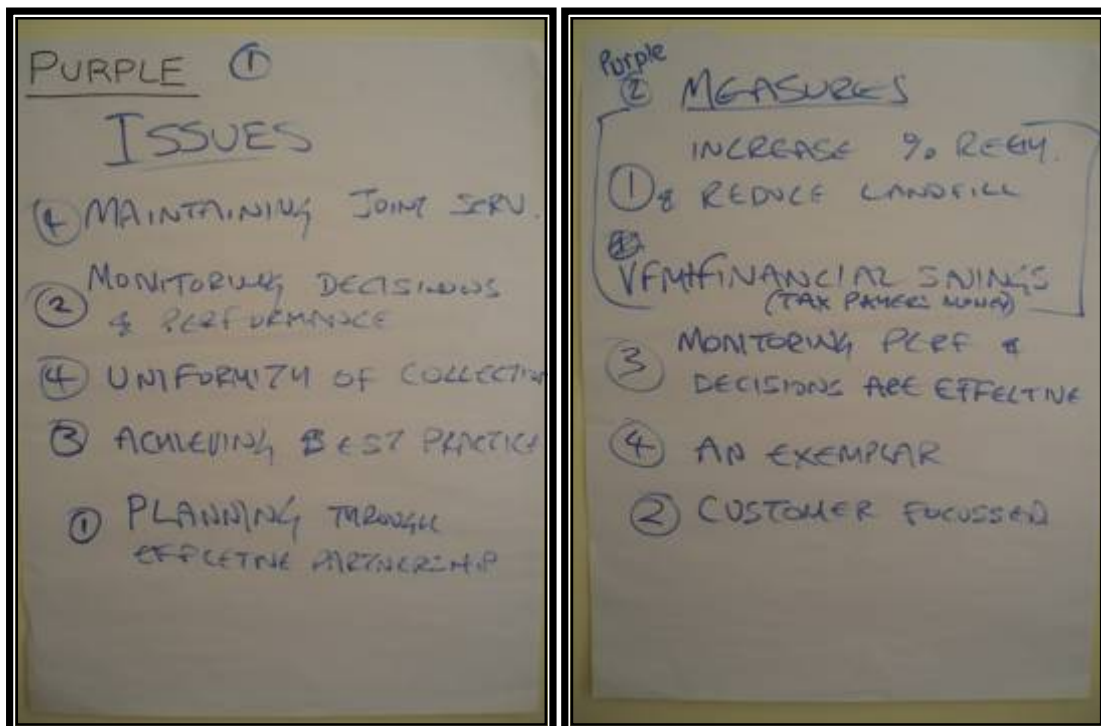 PURPLE ①
ISSUES
④ MAINTAINING JOINT SERV.
MONITORING DECISIONS
② & PERFORMANCE
④ UNIFORMITY OF COLLECTION
③ ACHIEVING BEST PRACTICE
① PLANNING THROUGH
EFFECTIVE PARTNERSHIP
Purple
② MEASURES
INCREASE %
① & REDUCE LANDFILL
VFM+FINANCIAL SAVINGS
(TAX PAYERS MONEY)
MONITORING PERF &
③ DECISIONS ARE EFFECTIVE
④ AN EXEMPLAR
② CUSTOMER FOCUSSED